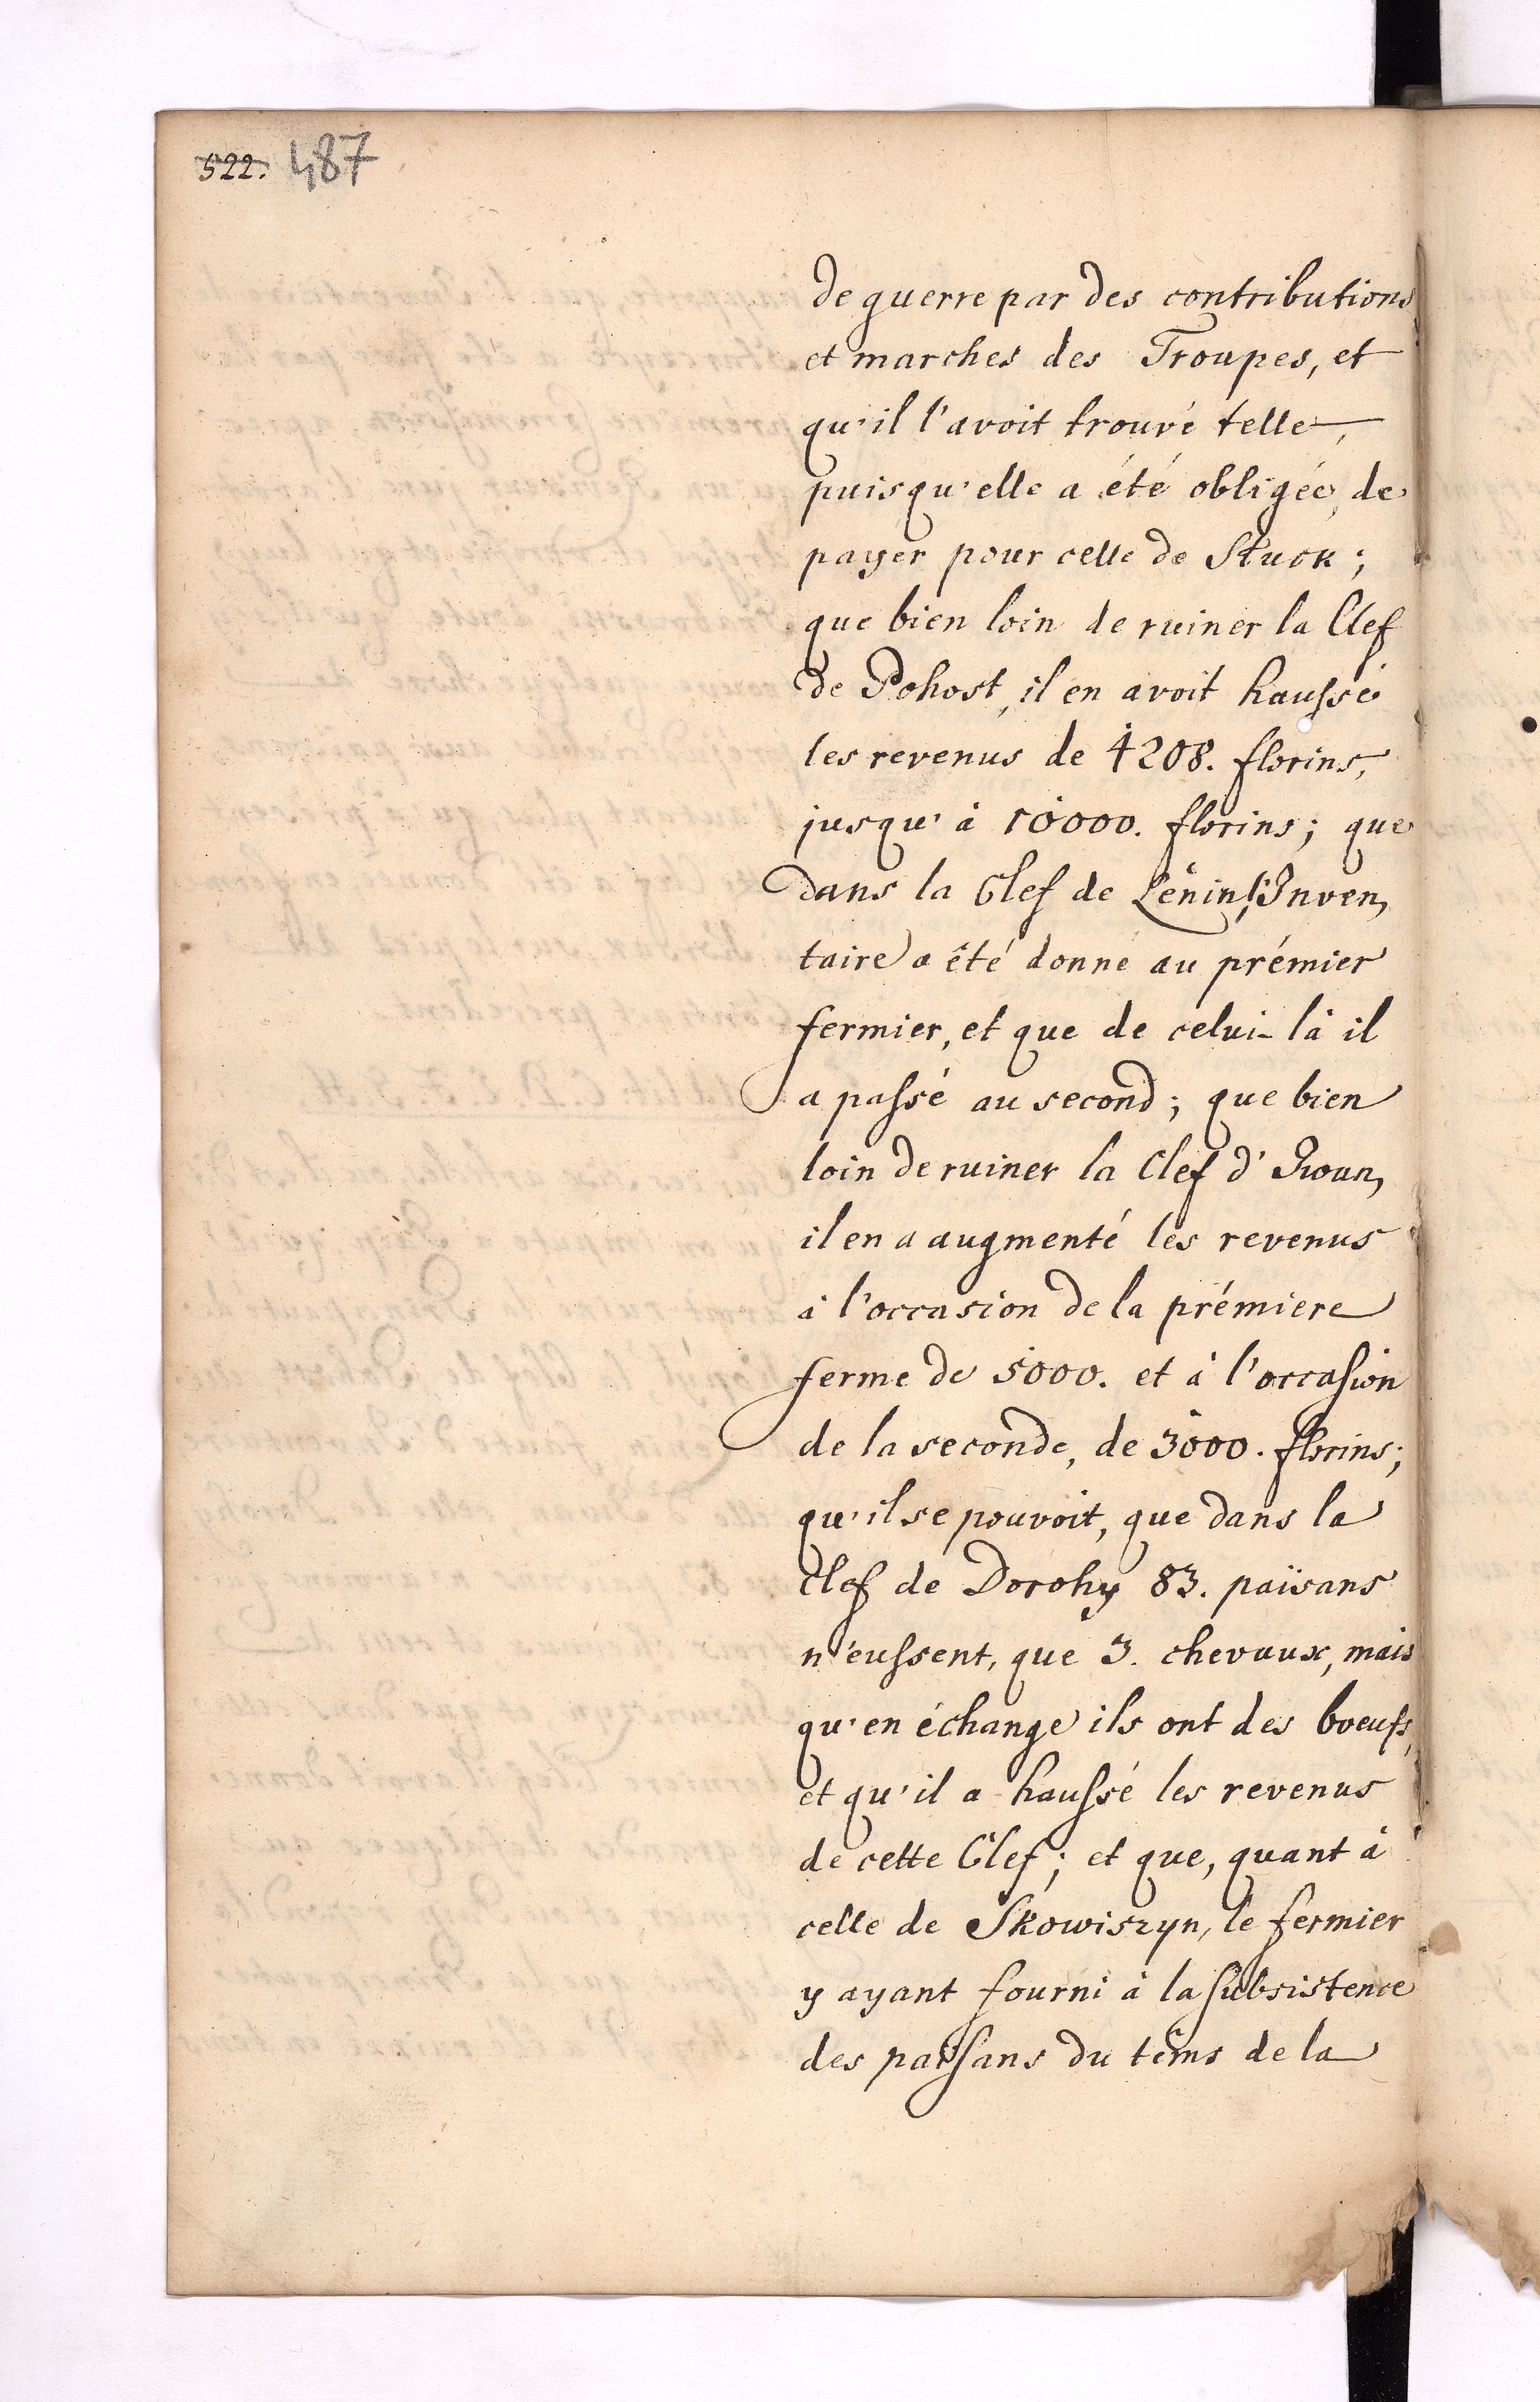 522. 487
de guerre par des contributions
et marches des Troupes, et
qu'il l'avoit trouvé telle,
puisqu'elle a été obligée, de
payer pour celle de Sluck;
que bien loin de ruiner la Clef
de Pohost, il en avoit haussé
les revenus de 4208. florins,
jusqu'à 10000. florins; que
dans la Clef de Lenin l'Inven,
taire a été donné au prémier
fermier, et que de celui-là il
a passé au second; que bien
loin de ruiner la Clef d'Iwan,
il en a augmenté les revenus
à l'occasion de la prémiere
ferme de 5000. et à l'occasion
de la seconde, de 3000. florins;
qu'il se pouvoit, que dans la
Clef de Dorohy 83. païsans
n'eussent, que 3. chevaux, mais
qu'en échange ils ont des boeufs,
et qu'il a haussé les revenus
de cette Clef; et que, quant à
celle de Skowiszyn, le fermier
y ayant fourni à la subsistence
des païsans du téms de la